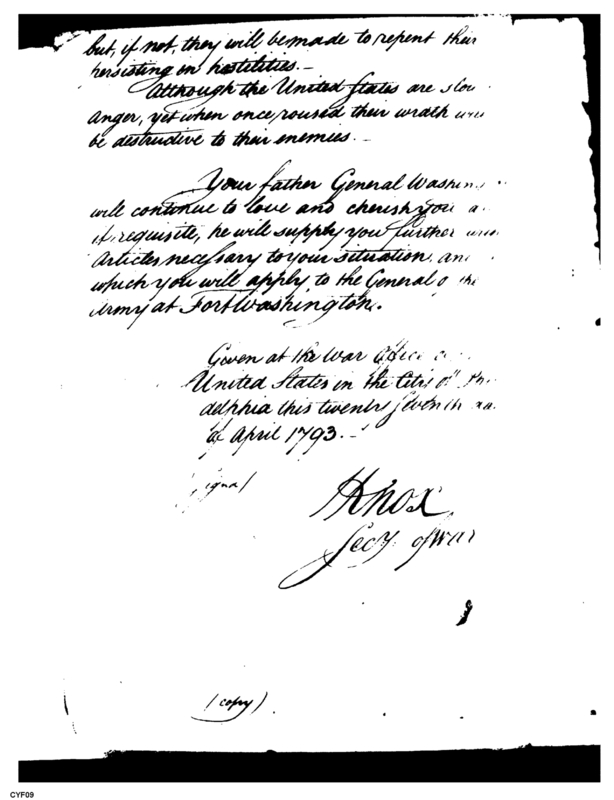 but, if not, they will be made to repent their
persisting in hostilities. –
Although the United States are slow
anger, yet when once roused their wrath will
be destructive to their enemies. –
Your father General Washin
will continue to love and cherish you a
if requisite, he will supply you further with
Articles necessary to your situation, and
which you will apply to the General of the
Army at Fort Washington.
Given at the War Office
United States in the City of
delphia this twenty seventh
of April 1793. –
HKnox
Secy of War
(copy)
CYF09